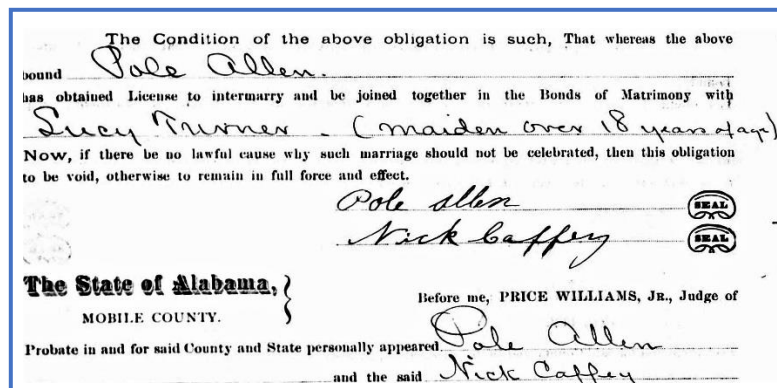 The Condition of the above obligation is such, That whereas the above
bound Pole Allen.
has obtained License to intermarry and be joined together in the Bonds of Matrimony with
Lucy Turner - (maiden over 18 years of age)
Now, if there be no lawful cause why such marriage should not be celebrated, then this obligation
to be void, otherwise to remain in full force and effect.
Pole Allen SEAL
Nick Caffey SEAL
The State of Alabama,
MOBILE COUNTY.
Before me, PRICE WILLIAMS, JR., Judge of
Probate in and for said County and State personally appeared Pole Allen
and the said Nick Caffey